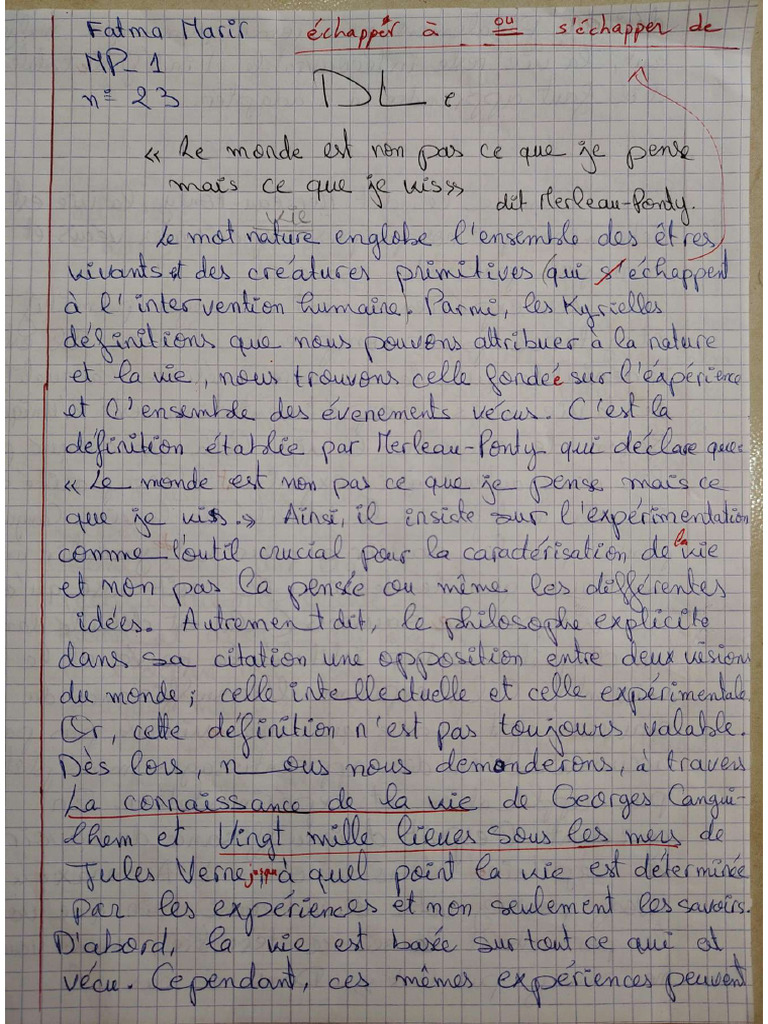 Fatma Marir échapper à _ _ ou s'échapper de
MP_1
n° 23
DL
« Le monde est non pas ce que je pense
mais ce que je vis»
dit Merleau-Ponty.
vie
Le mot nature englobe l'ensemble des êtres
vivants et des créatures primitives (qui s'échappent
à l'intervention humaine). Parmi, les Kyrielles
définitions que nous pouvons attribuer à la nature
et la vie, nous trouvons celle fondée sur l'éxpérience
et l'ensemble des évenements vécus. C'est la
définition établie par Merleau-Ponty qui déclare que:
« Le monde est non pas ce que je pense mais ce
que je vis.» Ainsi, il insiste sur l'expérimentation
comme l'outil crucial pour la caractérisation de la vie
et non pas la pensée ou même les différentes
idées. Autrement dit, le philosophe explicite
dans sa citation une opposition entre deux visions
du monde; celle intellectuelle et celle expérimentale.
Or, cette définition n'est pas toujours valable.
Dès lors, nous nous demanderons, à travers
La connaissance de la vie de Georges Cangui-
lhem et Vingt mille lieues sous les mers de
Jules Verne, jusqu'à quel point la vie est déterminée
par les expériences et non seulement les savoirs.
D'abord, la vie est basée sur tout ce qui et
vécu. Cependant, ces mêmes expériences peuvent